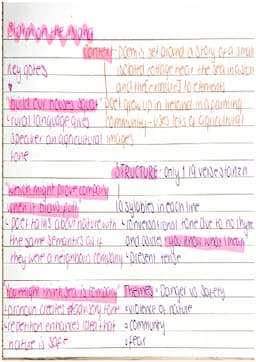 Storm on the Island
Context - Poem is set around a story of a small
isolated cottage near the sea in a storm
and their exposure to elements
Key notes
"build our houses squat"
Poet grew up in Ireland in a farming
↳ rural language gives
community - uses lots of agricultural
speaker an agricultural
images
tone
STRUCTURE - only 1 19 verse stanza
"which might prove company
when it blows full"
10 sylables in each line
↳ poet talks about nature with
↳ conversational tone due to no rhyme
the same semantics as if
and asides "you know what I mean"
they were a neighbour company
↳ present tense
"You might think sea is company"
Themes - Danger vs Safety
↳ pronoun creates
tone
• violence of nature
↳ repetition enhances idea that
• community
nature is safe
• fear